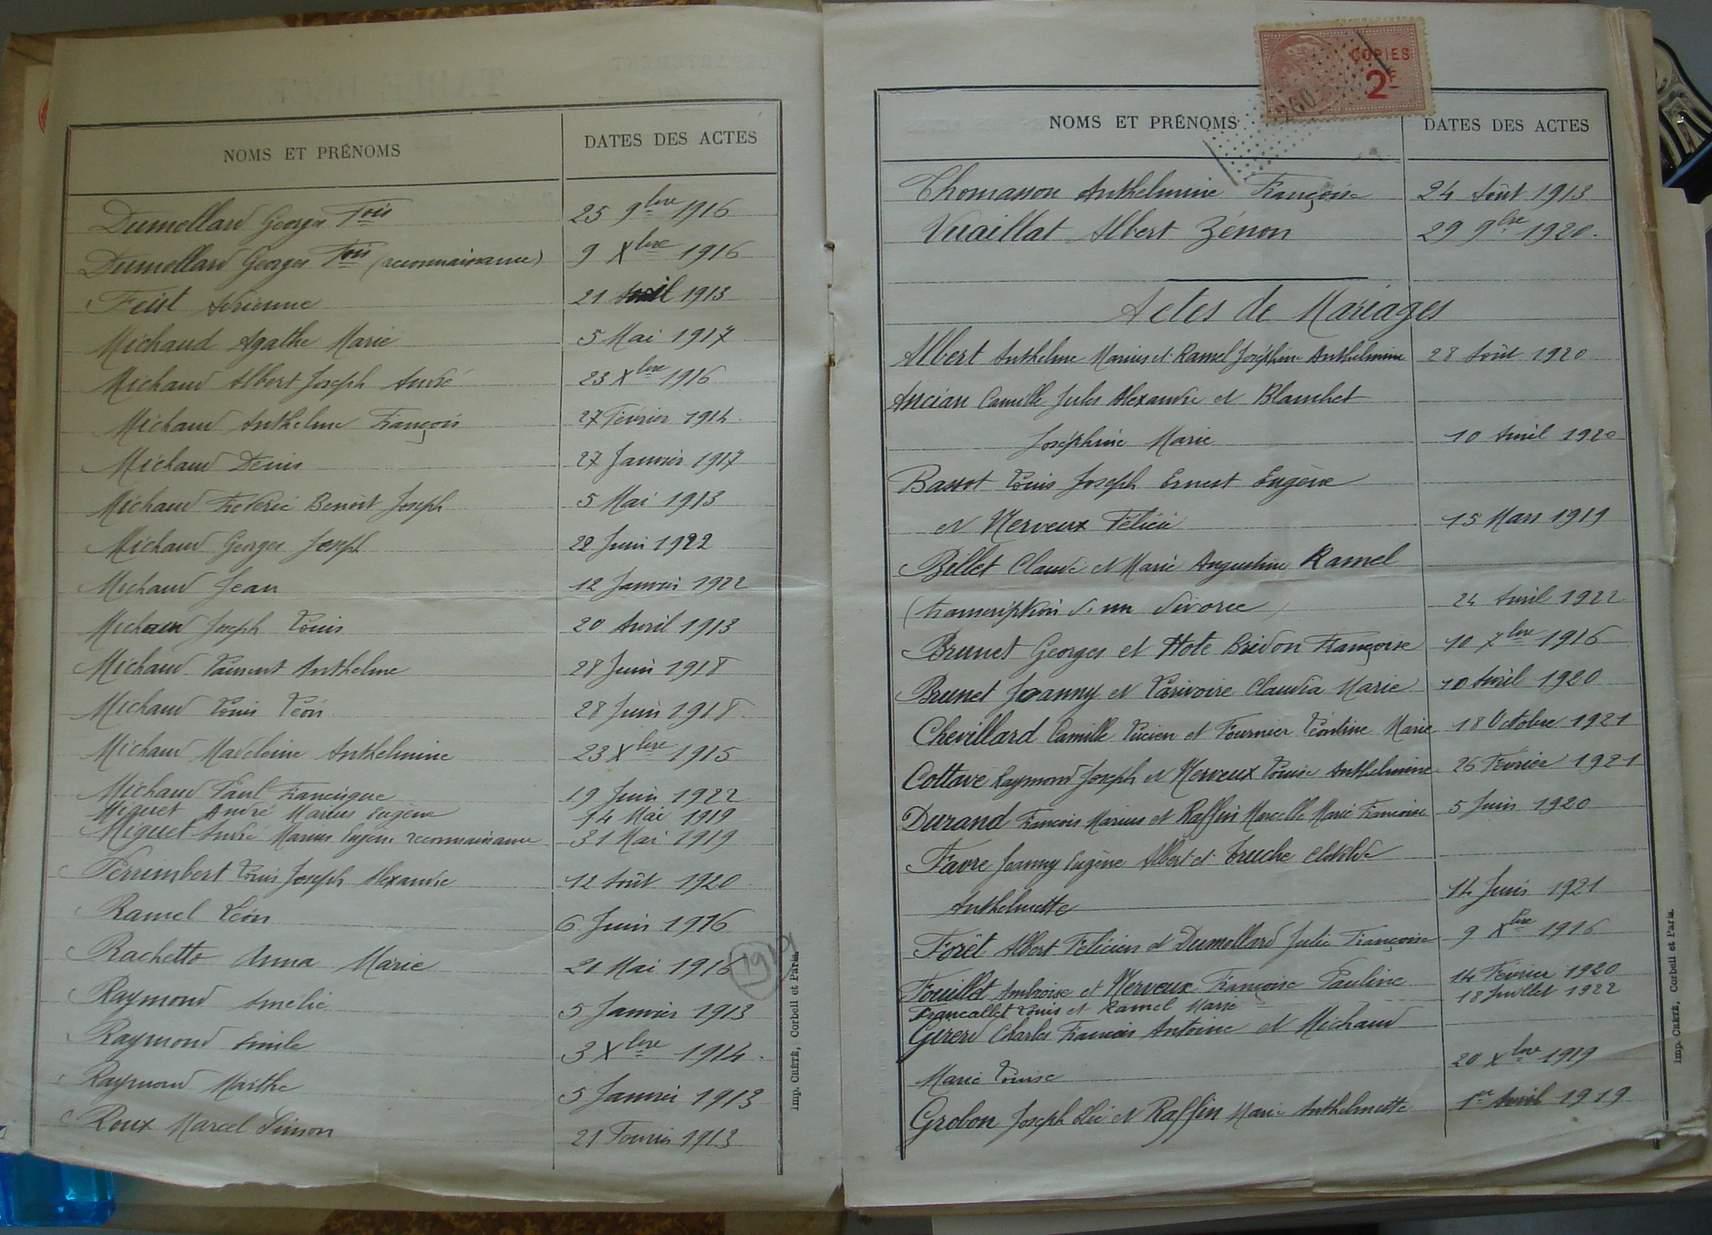 NOMS ET PRÉNOMS DATES DES ACTES
Dumollard Georges Fois 25 9bre 1916
Dumollard Georges Fois (reconnaissance) 9 Xbre 1916
Feist Adrienne 21 Avril 1913
Michaud Agathe Marie 5 Mai 1917
Michaud Albert Joseph André 23 Xbre 1916
Michaud Anthelme François 27 Février 1914
Michaud Denis 27 Janvier 1917
Michaud Frédéric Benoit Joseph 5 Mai 1913
Michaud Georges Joseph 22 Juin 1922
Michaud Jean 12 Janvier 1922
Michaud Joseph Louis 20 Avril 1913
Michaud Laurent Anthelme 28 Juin 1918
Michaud Louis Léon 28 Juin 1918
Michaud Madeleine Anthelmine 23 Xbre 1915
Michaud Paul Francisque 19 Juin 1922
Miguet André Marius Eugène 14 Mai 1919
Miguet André Marius Eugène reconnaissance 31 Mai 1919
Perrimbert Louis Joseph Alexandre 12 Août 1920
Ramel Léon 6 Juin 1916
Rachetto Anna Marie 21 Mai 1916
Raymond Amélie 5 Janvier 1913
Raymond Emile 3 Xbre 1914
Raymond Marthe 5 Janvier 1913
Roux Marcel Simon 21 Février 1913
Imp. CRÉTÉ, Corbeil et Paris.
COPIES
2F
NOMS ET PRÉNOMS DATES DES ACTES
Thomasson Anthelmine Françoise 24 Août 1913
Vuaillat Albert Zénon 29 9bre 1920
Actes de Mariages
Albert Anthelme Marius et Ramel Joséphine Anthelmine 28 Août 1920
Ancian Camille Jules Alexandre et Blanchet
Joséphine Marie 10 Avril 1920
Bassot Louis Joseph Ernest Eugène
et Nerveux Félicie 15 Mars 1919
Billet Claude et Marie Augustine Ramel
(transcription d'un divorce) 24 Avril 1922
Brunet Georges et Hote Bridon Françoise 10 7bre 1916
Brunet Joanny et Parivoire Claudia Marie 10 Avril 1920
Chevillard Camille Lucien et Fournier Léontine Marie 18 Octobre 1921
Cottave Raymond Joseph et Nerveux Louise Anthelmine 26 Février 1921
Durand François Marius et Raffin Marcelle Marie Françoise 5 Juin 1920
Favre Joanny Eugène Albert et Truche Clotilde
Anthelmette 14 Juin 1921
Forêt Albert Félicien et Dumollard Julie Françoise 9 Xbre 1916
Fouillet Ambroise et Nerveux Françoise Pauline 14 Février 1920
Francallet Louis et Ramel Marie 18 Juillet 1922
Girerd Charles François Antoine et Michaud
Marie Louise 20 Xbre 1919
Grobon Joseph Elie et Raffin Marie Anthelmette 1er Avril 1919
Imp. CRÉTÉ, Corbeil et Paris.